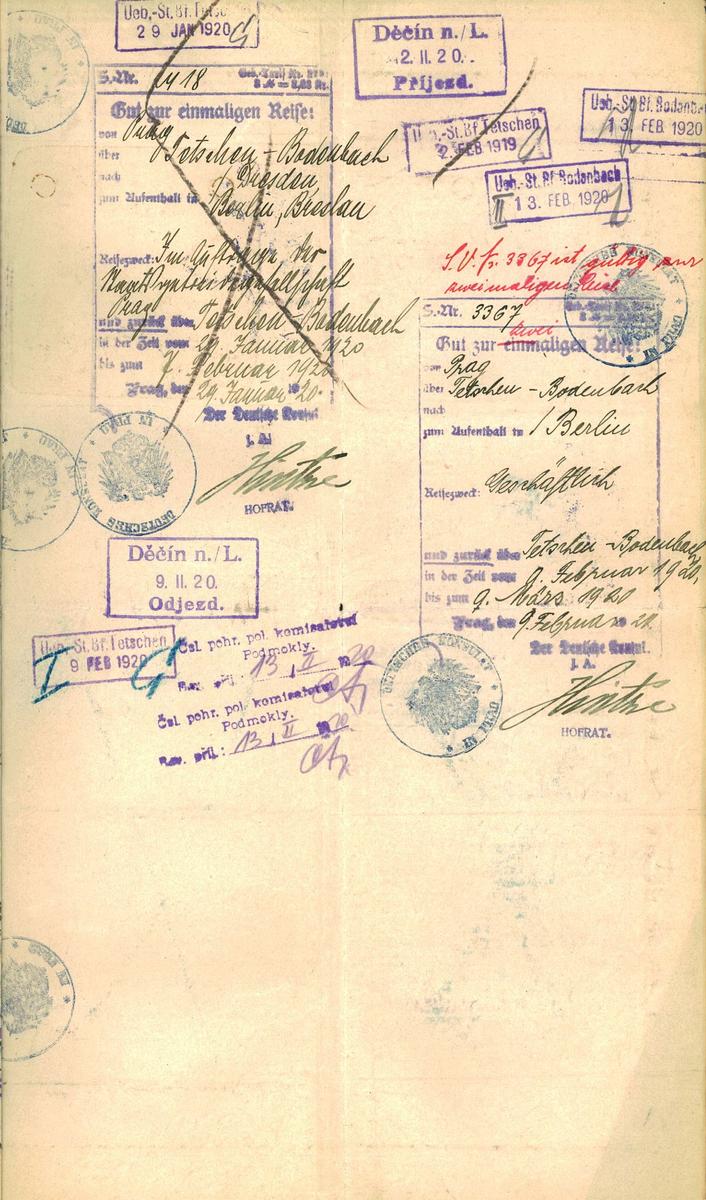 Ueb.-St.Bf.Tetschen
29 JAN 1920
S.-Nr. 2418
Gut zur einmaligen Reise:
von Prag
über Tetschen-Bodenbach
nach / Dresden,
zum Aufenthalt in Berlin, Breslau
Reisezweck: Im Auftrage der
Prag
und zurück über Tetschen-Bodenbach
in der Zeit vom 29. Januar 1920
bis zum 7. Februar 1920
Prag, den 29. Januar 1920.
Der Deutsche Konsul.
J. A.
HOFRAT.
DEUTSCHES KONSULAT * IN PRAG *
Děčín n./L.
9. II. 20.
Odjezd.
Ueb.-St.Bf.Tetschen
9 FEB 1920
I
Čsl. pohr. pol. komisařství
Podmokly.
Rev. příj.: 13. II 1920
Čsl. pohr. pol. komisařství
Podmokly.
Rev. příj.: 13. II 1920
Děčín n./L.
2. II. 20.
Příjezd.
Ueb.-St.Bf.Tetschen
2. FEB 1919
Ueb.-St.Bf.Bodenbach
13. FEB. 1920
Ueb.-St.Bf.Bodenbach
II 13. FEB. 1920
S.V. Nr. 3367 ist gültig zur
zweimaligen Reise
S.-Nr. 3367
zwei
Gut zur einmaligen Reise:
von Prag
über Tetschen-Bodenbach
nach
zum Aufenthalt in / Berlin
Reisezweck: Geschäftlich
und zurück über Tetschen-Bodenbach
in der Zeit vom 9. Februar 1920,
bis zum 9. März 1920
Prag, den 9. Februar 20.
Der Deutsche Konsul.
J. A.
HOFRAT.
DEUTSCHES KONSULAT * IN PRAG *